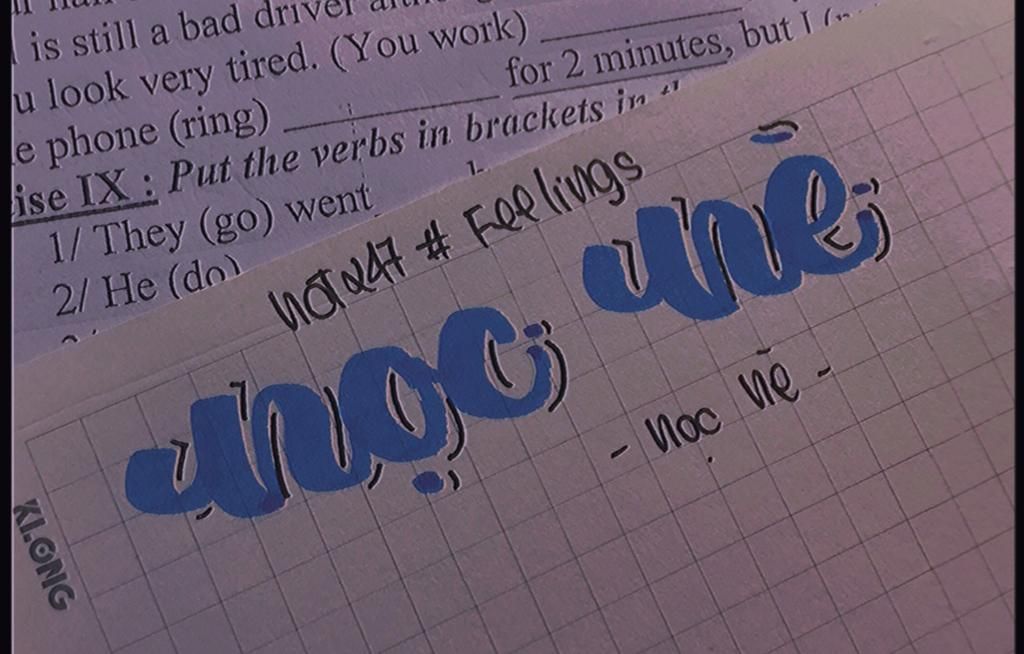 is still a bad driver
u look very tired. (You work)
e phone (ring) for 2 minutes, but I
ise IX : Put the verbs in brackets in
1/ They (go) went
2/ He (do)
# Feelings
nọc nẽ
- nọc nẽ -
KLONG